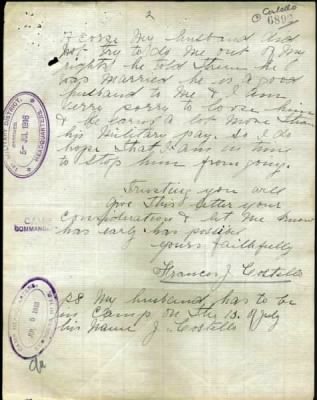 2
Costello
6892
force My husband did
not try to do me out of My
rights he told them he
was married he is a good
husband to Me & I am
verry sorry to loose him
& he earns a lot more than
his Military pay. So I do
hope that I am in time
to stop him from going.
Trusting you will
give this letter your
Consideration & let me know
has early has posible
yours faithfully
Frances J. Costello
PS My husband has to be
in Camp on the 13. of July
his Name J Costello
DISTRICT
5 - JUL 1916
HEADQUARTERS
CAMP
COMMAN